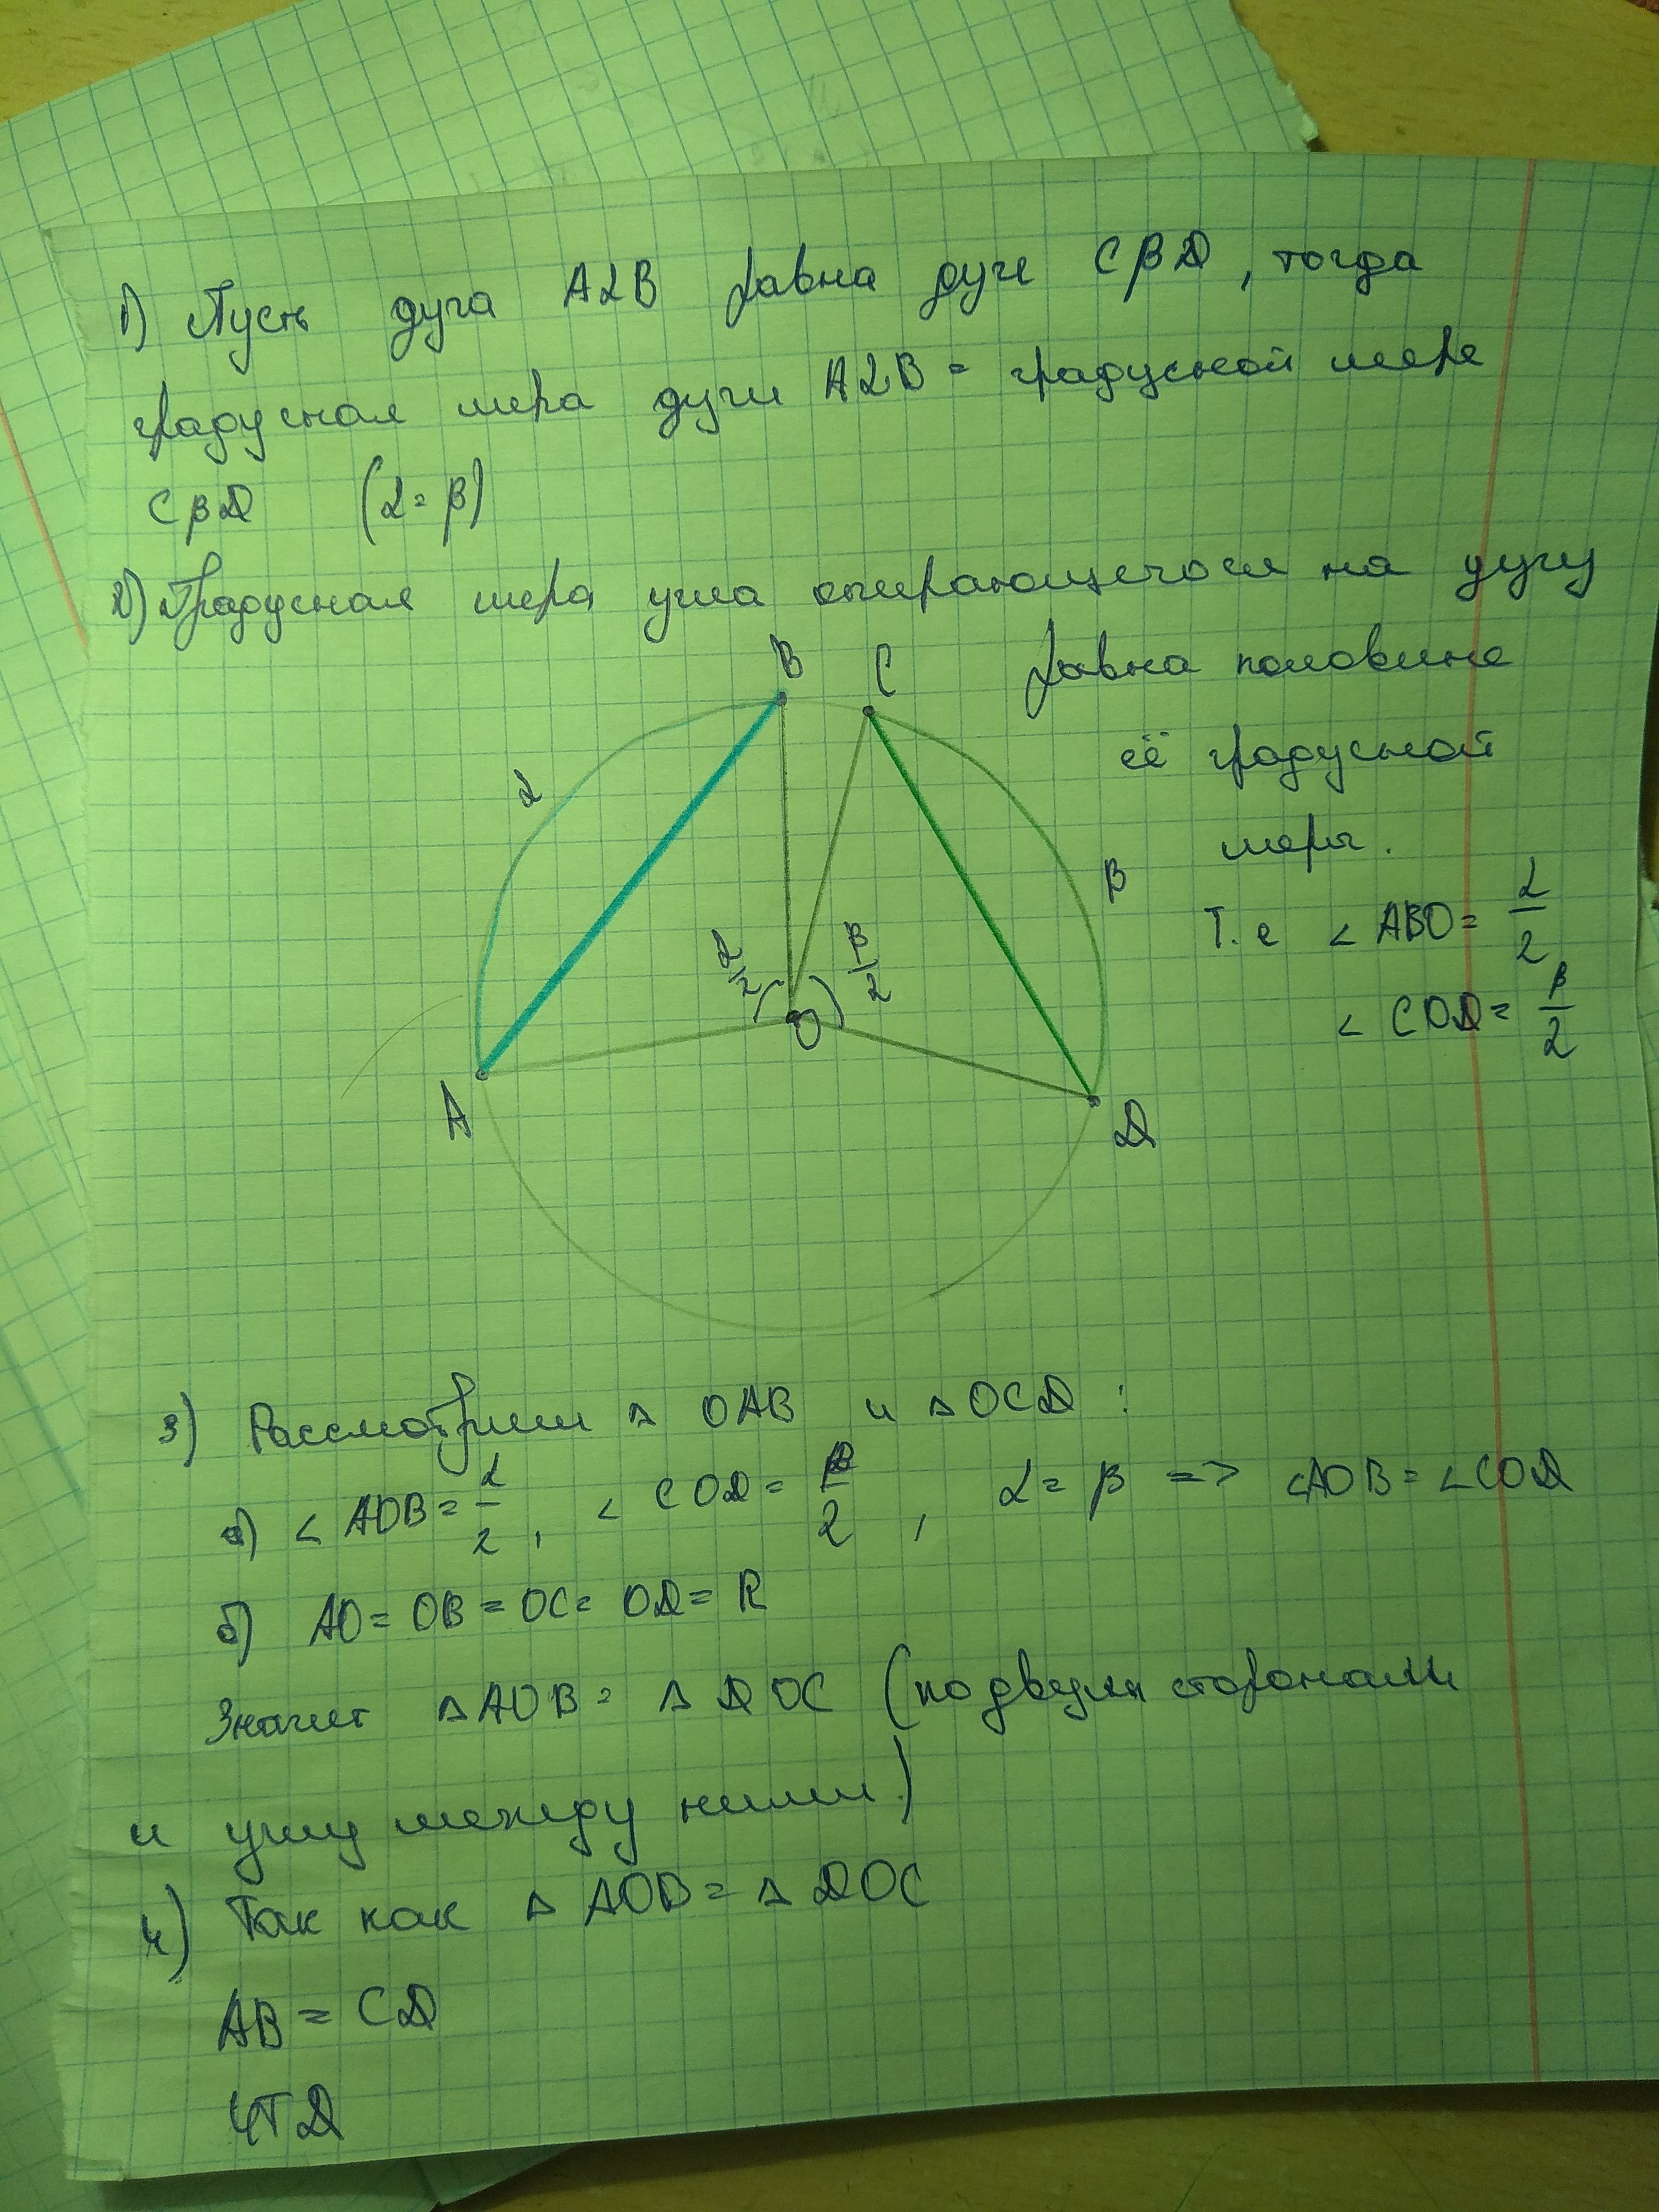 1) Пусть дуга AαB равна дуге CβD, тогда
градусная мера дуги AαB = градусной мере
CβD (α = β)
2) Градусная мера угла опирающегося на дугу
равна половине
её градусной
меры.
Т.е ∠ ABO = α/2
∠ COD = β/2
B C
α
β
α/2 β/2
O
A D
3) Рассмотрим △ OAB и △ OCD :
а) ∠ AOB = α/2 , ∠ COD = β/2 , α = β => ∠AOB = ∠COD
б) AO = OB = OC = OD = R
Значит △ AOB = △ DOC (по двум сторонам
и углу между ними)
4) Так как △ AOB = △ DOC
AB = CD
ЧТД